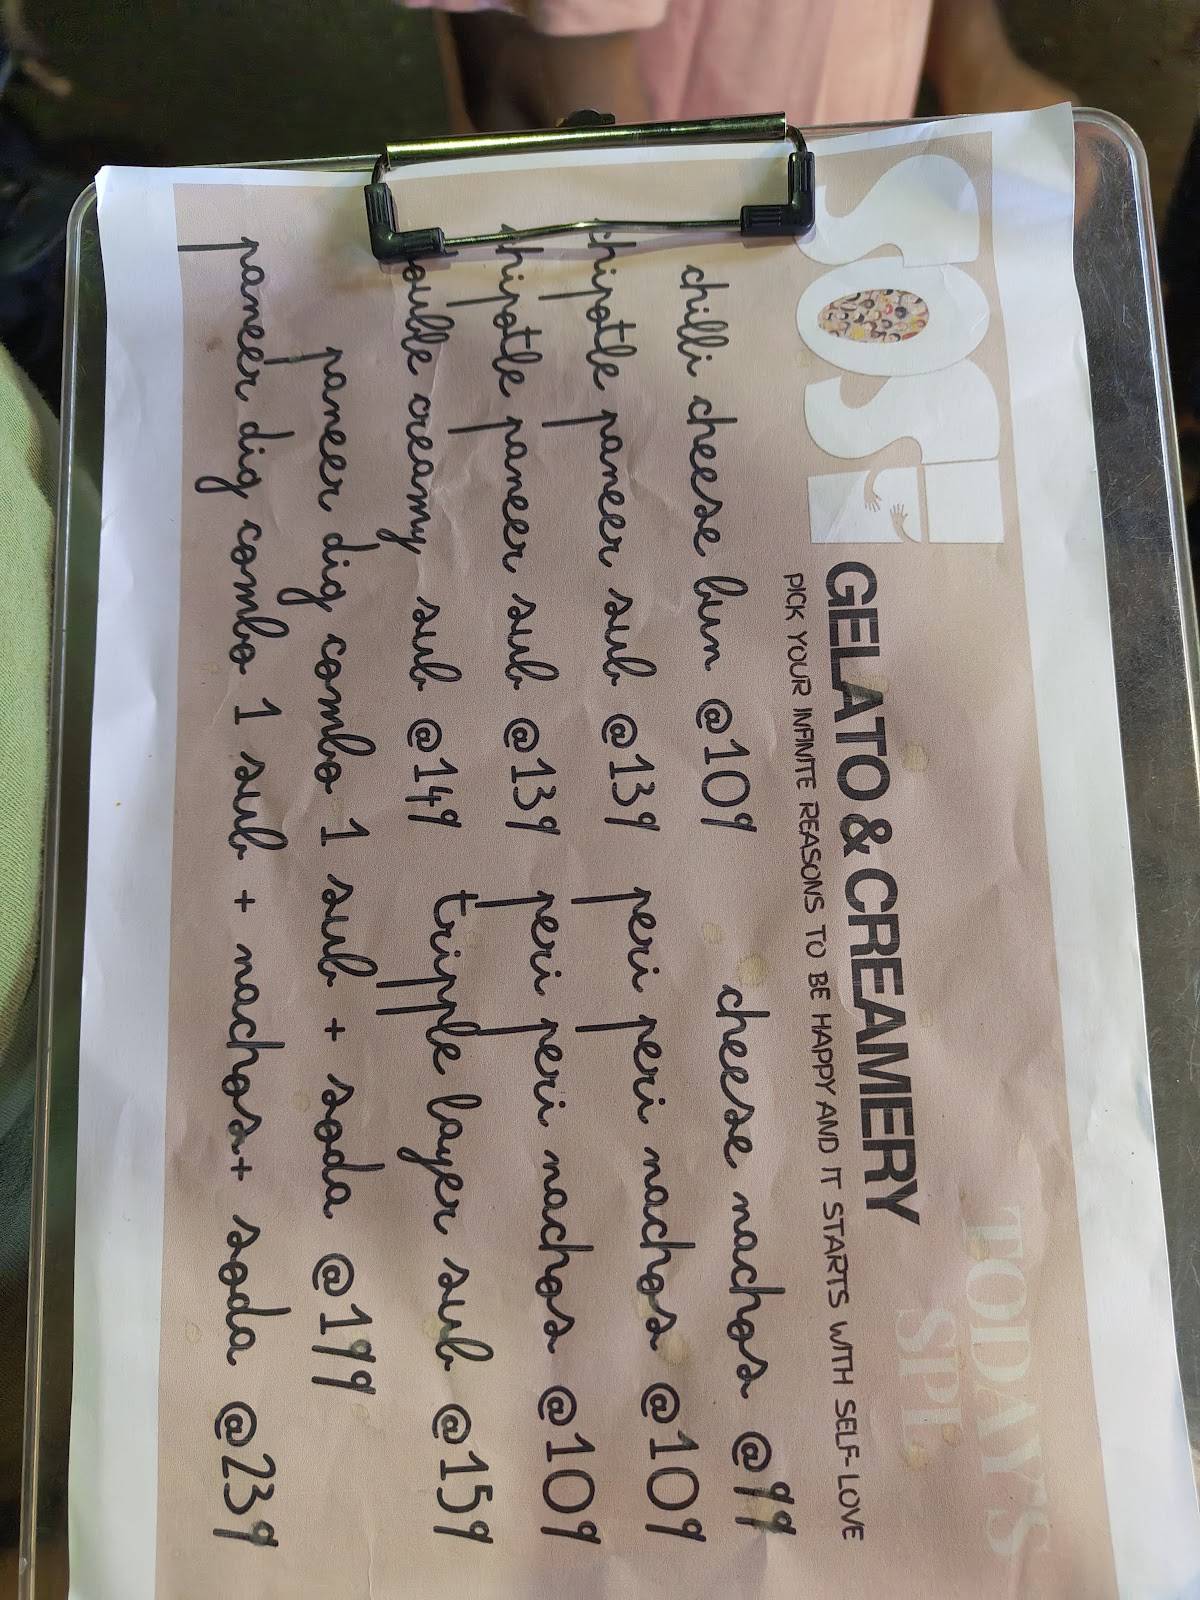 SOSE
GELATO & CREAMERY
PICK YOUR INFINITE REASONS TO BE HAPPY AND IT STARTS WITH SELF-LOVE
TODAY'S
SPL
chilli cheese bun @109 cheese nachos @99
chipotle paneer sub @139 peri peri nachos @109
chipotle paneer sub @139 peri peri nachos @109
double creamy sub @149 tripple layer sub @159
paneer dig combo 1 sub + soda @199
paneer dig combo 1 sub + nachos+ soda @239